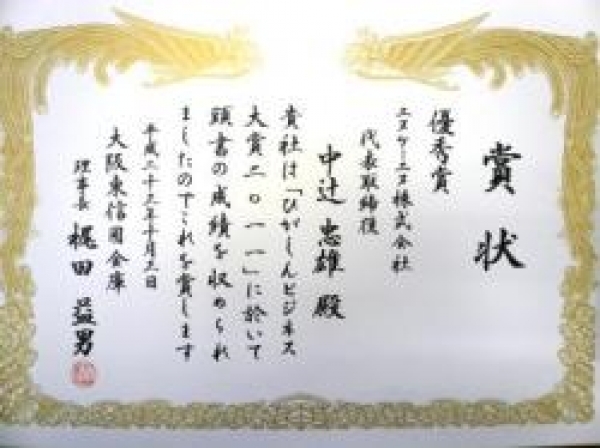 賞状
優秀賞
エヌケーエヌ株式会社
代表取締役
中辻忠雄殿
貴社は「ひがしんビジネス
大賞二〇一一」に於いて
頭書の成績を収められ
ましたのでこれを賞します
平成二十三年十月三日
大阪東信用金庫
理事長 梶田益男